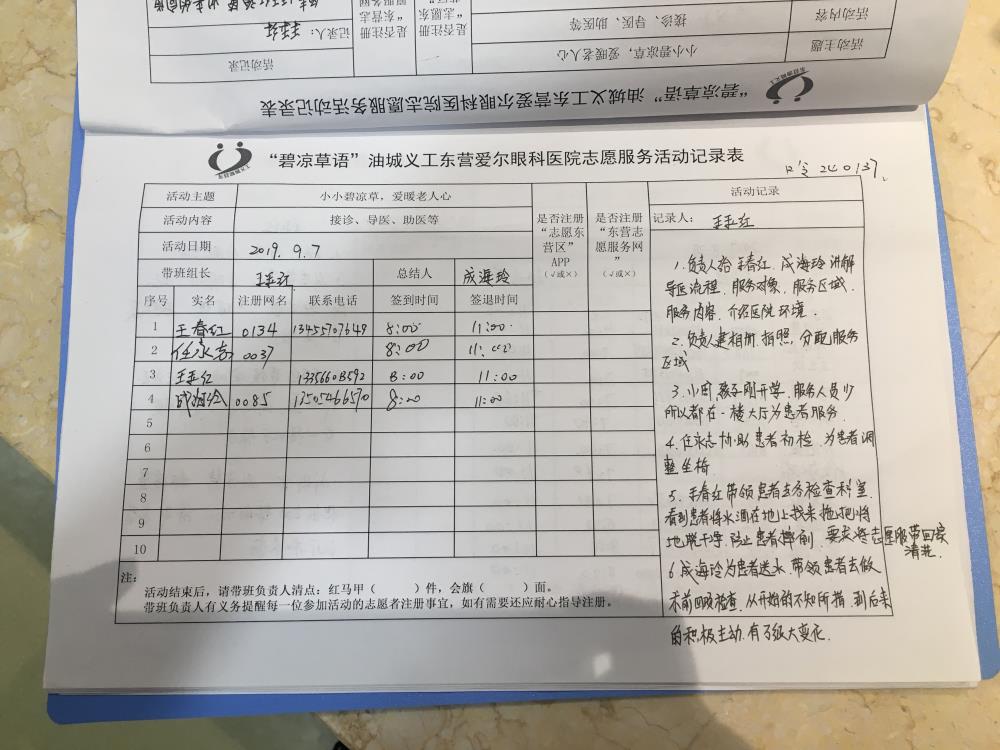 活动记录
记录人：
活动主题
小小碧凉草，爱暖老人心
活动内容
接诊、导医、助医等
“碧凉草语”油城义工东营爱尔眼科医院志愿服务活动记录表
“碧凉草语”油城义工东营爱尔眼科医院志愿服务活动记录表
口令240137
活动主题 小小碧凉草，爱暖老人心
活动内容 接诊、导医、助医等
活动日期 2019.9.7
带班组长 王玉红 总结人 成海玲
是否注册“志愿东营区”APP（√或×）
是否注册“东营志愿服务网”（√或×）
序号 实名 注册网名 联系电话 签到时间 签退时间
1 王春红 0134 13455707649 8:00 11:00
2 任永志 0037 8:00 11:00
3 王玉红 13356608592 8:00 11:00
4 成海玲 0085 13505466570 8:00 11:00
5
6
7
8
9
10
注：
活动结束后，请带班负责人清点：红马甲（ ）件，会旗（ ）面。
带班负责人有义务提醒每一位参加活动的志愿者注册事宜，如有需要还应耐心指导注册。
活动记录
记录人：王玉红
1.负责人给王春红、成海玲讲解
导医流程、服务对象、服务区域、
服务内容、介绍医院环境。
2.负责人建相册、拍照，分配服务
区域
3.小周、孩子刚开学、服务人员少
所以都在一楼大厅为患者服务。
4.任永志协助患者初检、为患者调
整坐椅
5.王春红带领患者去各检查科室，
看到患者将水洒在地上找来拖把将
地脱干净、防止患者摔倒、要求将志愿服带回家
清洗。
6成海玲为患者送水、带领患者去做
术前四项检查、从开始的不知所措、到后来
的积极主动、有了很大变化。